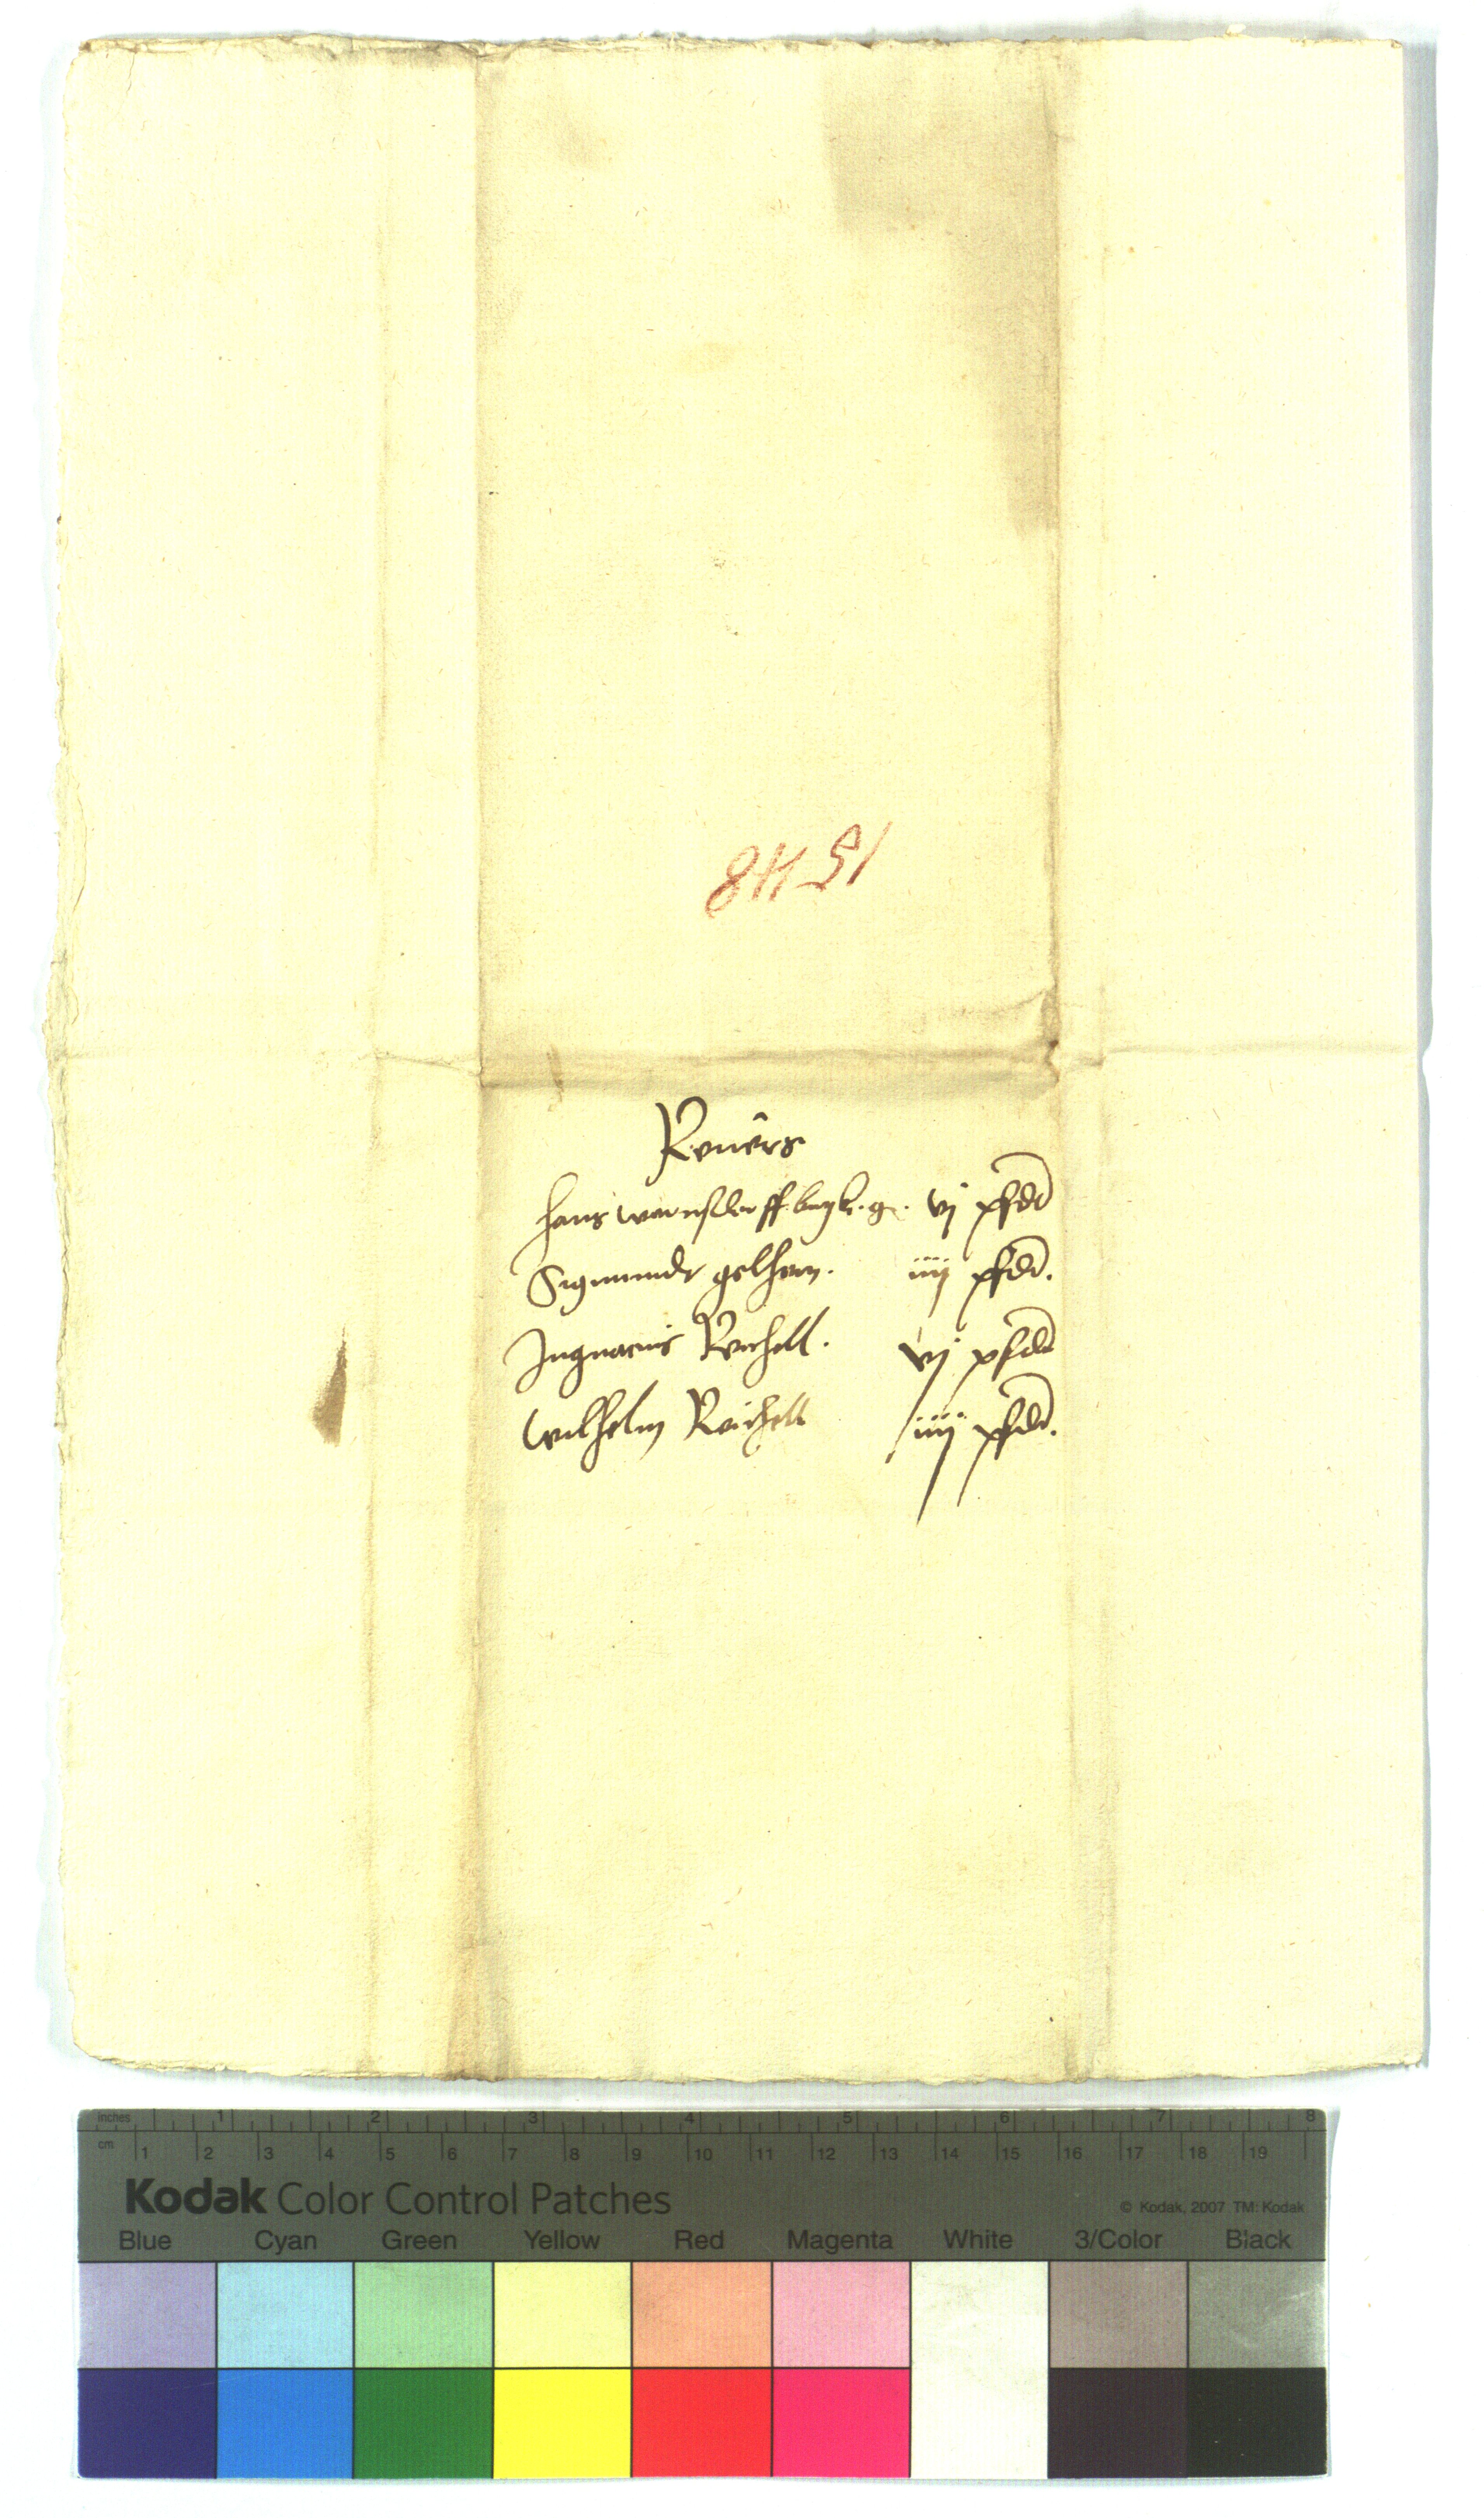 1548
Reuers
Hans warnsdorff. k. g. vj pfdt
Sigmundt gelhorn. iiij pfdt.
Ingnacius Reichell. vj pfdt
Wilhelm Reichell iiij pfdt.
inches 1 2 3 4 5 6 7 8
cm 1 2 3 4 5 6 7 8 9 10 11 12 13 14 15 16 17 18 19
Kodak Color Control Patches © Kodak, 2007 TM: Kodak
Blue Cyan Green Yellow Red Magenta White 3/Color Black